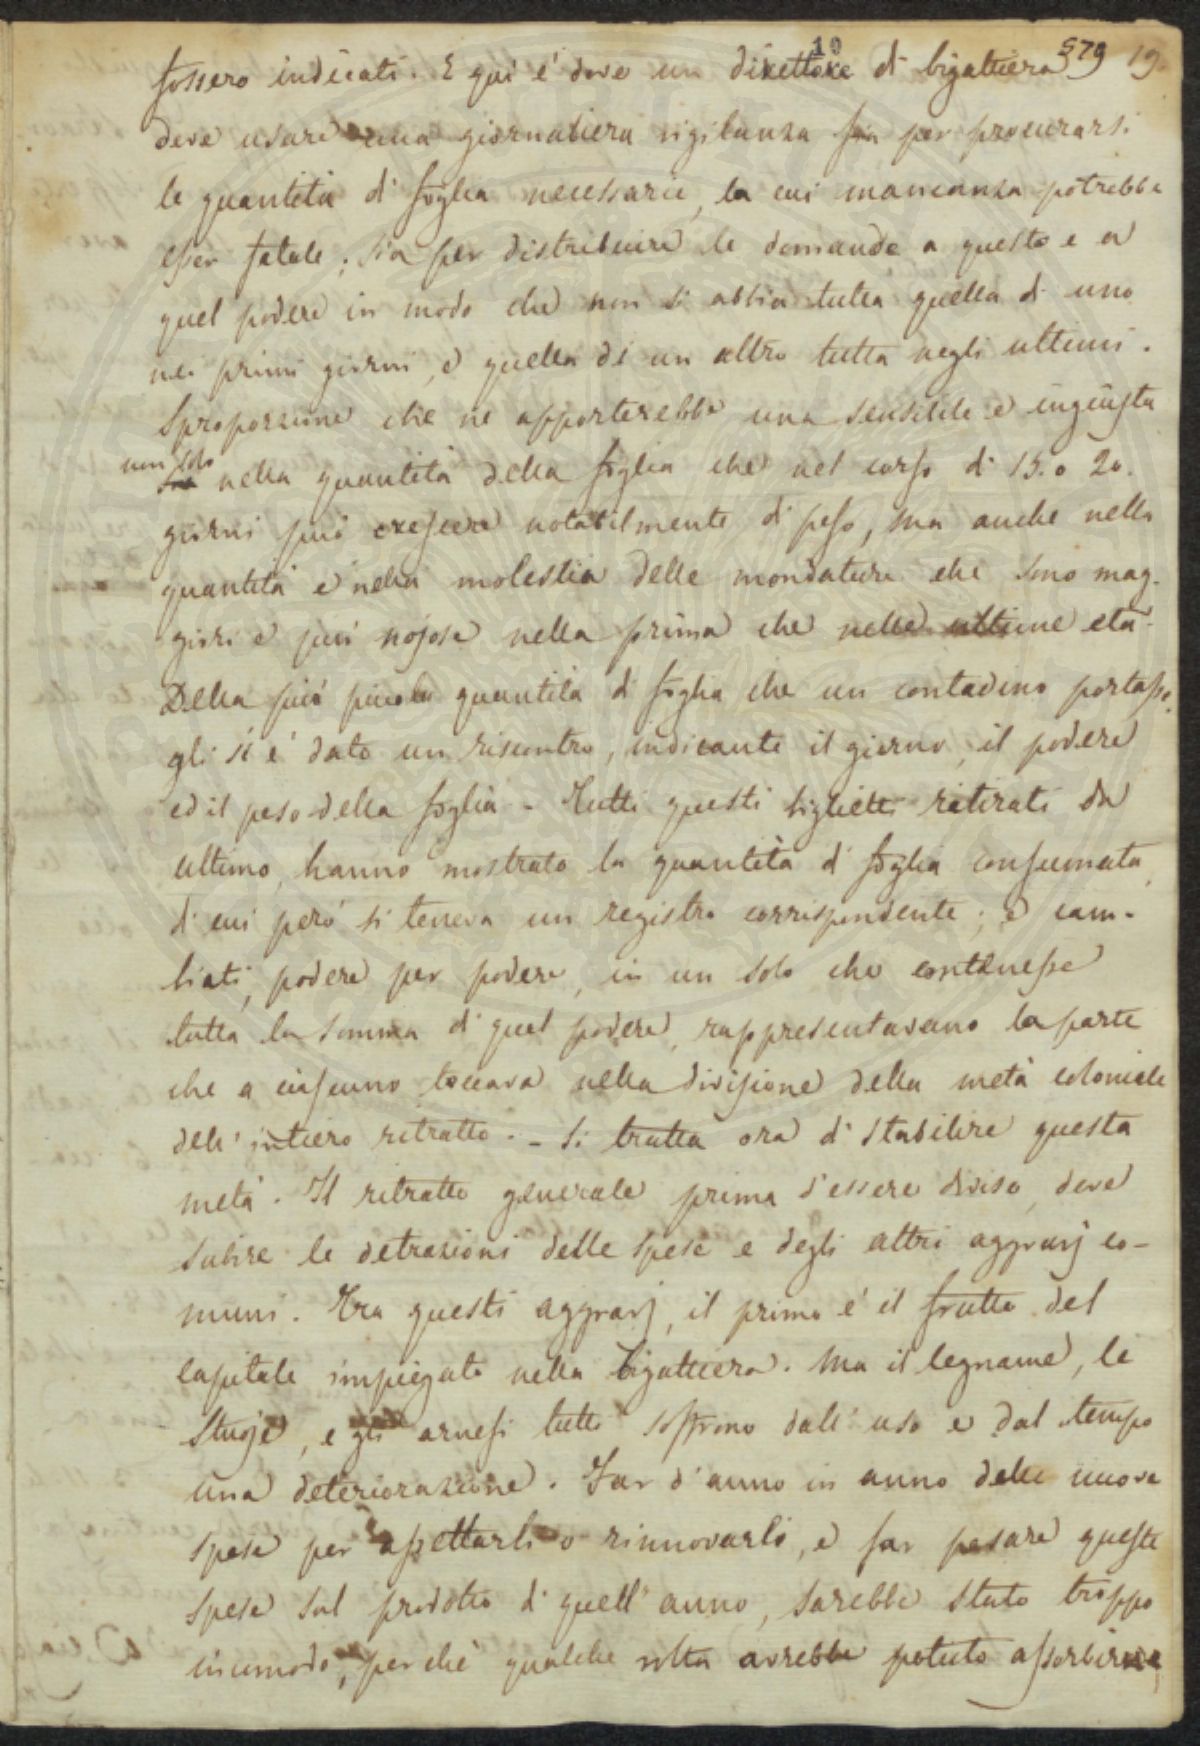 10 579 19.
fossero indicati. E quì é dove un direttore di bigattiera
deve usare una giornaliera vigilanza sia per procurarsi
le quantità di foglia necessarie, la cui mancanza potrebbe
esser fatale; sia per distribuire le domande a questo e a
quel podere in modo che non si abbia tutta quella di uno
nei primi giorni, e quella di un altro tutta negli ultimi.
Sproporzione che ne apporterebbe una sensibile e ingiusta
non solo
nella quantità della foglia che nel corso di 15. o 20.
giorni può crescere notabilmente di peso, ma anche nella
quantità e nella molestia delle mondature che sono mag-
giori e più nojose nella prima che nelle ultime età.
Della più piccola quantità di foglia che un contadino portasse,
gli si é dato un riscontro, indicante il giorno, il podere
ed il peso della foglia - Tutti questi biglietti ritirati da
ultimo, hanno mostrato la quantità di foglia consumata,
di cui però si teneva un registro corrispondente; e cam-
biati, podere per podere, in un solo che contenesse
tutta la somma di quel podere, rappresentavano la parte
che a ciascuno toccava nella divisione della metà colonicale
dell'intiero ritratto. - Si tratta ora di stabilire questa
metà. Il ritratto generale prima d'essere diviso, deve
subire le detrazioni delle spese e degli altri aggravj co-
muni. Tra questi aggravj, il primo é il frutto del
capitale impiegato nella bigattiera. Ma il legname, le
stuoje, e gli arnesi tutti soffrono dall'uso e dal tempo
una deteriorazione. Far d'anno in anno delle nuove
spese per assettarli o rinnovarli, e far pesare queste
spese sul prodotto di quell'anno, sarebbe stato troppo
incomodo, perchè qualche volta avrebbe potuto assorbirne,